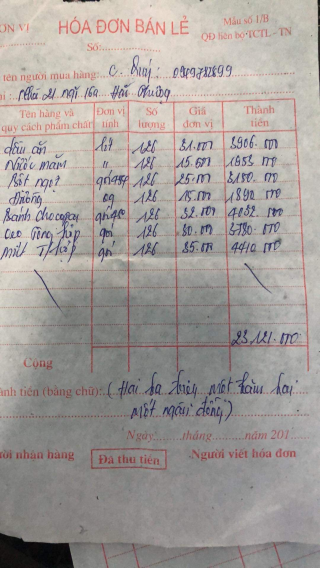 ƠN VỊ HÓA ĐƠN BÁN LẺ Mẫu số 1/B
QĐ liên bộ TCTL - TN
Số:
tên người mua hàng: C. Quý: 0989782899
Tên hàng và quy cách phẩm chất Đơn vị tính Số lượng Giá đơn vị Thành tiền
dầu ăn lít 126 31.000 3906.000
Nước mắm " 126 15.500 1953.000
Bột ngọt gói 126 25.000 3150.000
Đường 126 15.000 1890.000
Bánh chocopay 126 32.000 4032.000
gói 126 30.000 3780.000
mứt gói 126 35.000 4410.000
23.121.000
Cộng
ành tiền (bằng chữ): (Hai ba triệu một trăm hai
một ngàn đồng)
Ngày tháng năm 201
ười nhận hàng Đã thu tiền Người viết hóa đơn